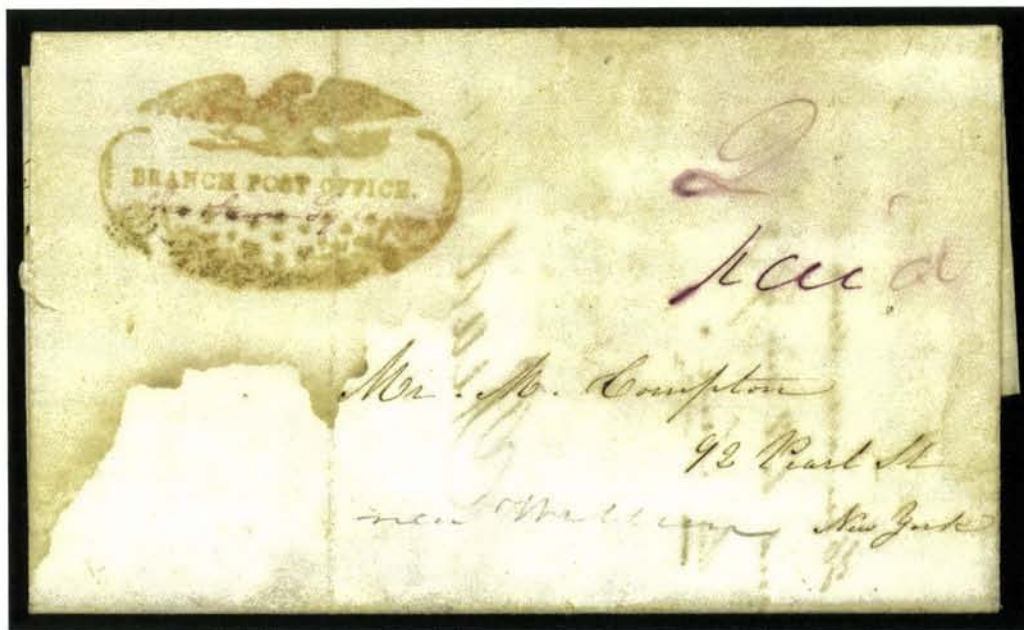 BRANCH POST OFFICE.
2
paid
Mr. M. Compton
92 Pearl St
New York